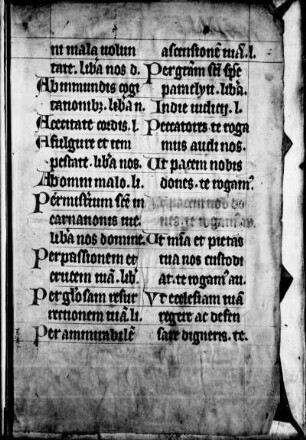 ni mala volun
tate. liba nos d.
Ab inmundis cogi
tationibz. liba n.
A cecitate cordis. l.
A fulgure et tem
pestate. liba nos.
Ab omni malo. li.
Per misterium scē in
carnationis tue.
liba nos domine.
Per passionem et
crucem tuā. lib.
Per gliosam resur
rectionem tuā. li.
Per ammirabilē
ascensionē tuā. l.
Per grām scī spc
paraclyti. liba.
In die iudicij. l.
Peccatores. te roga
mus audi nos.
Ut pacem nobis
dones. te rogam
Ut pacem nob do
nes. te rogam au.
Ut mīa et pietas
tua nos custodi
at. te rogam au.
Ut ecclesiam tuā
regere ac defen
sare digneris. te.